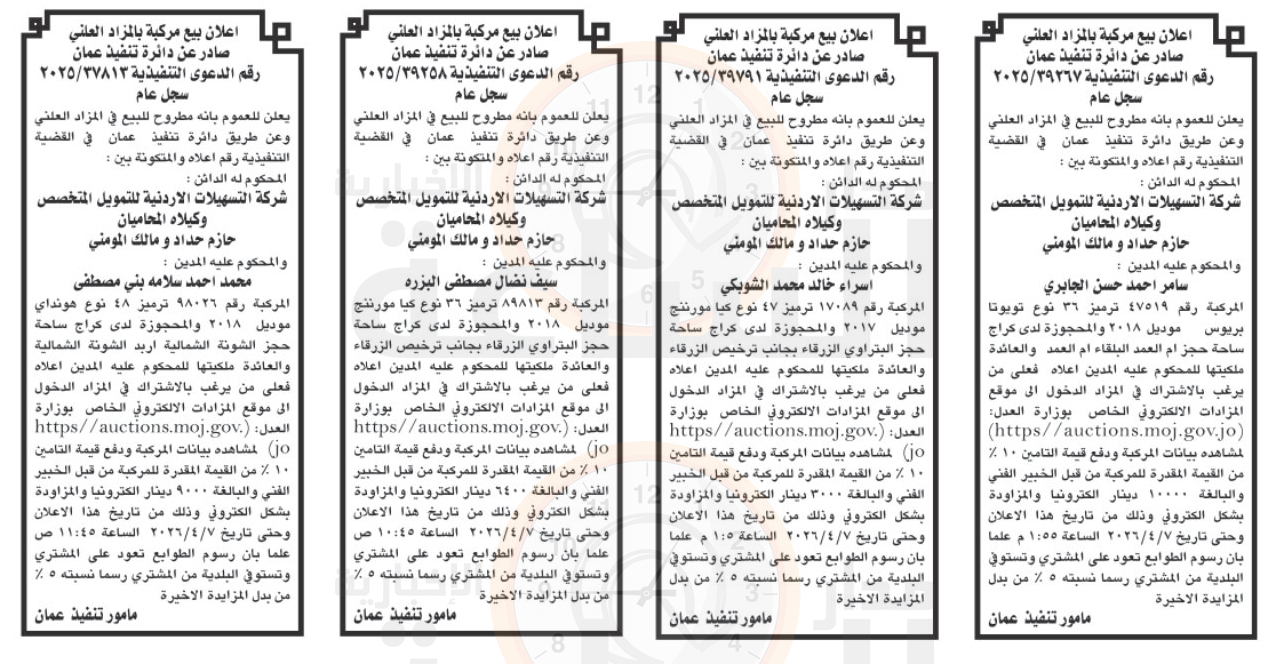 اعلان بيع مركبة بالمزاد العلني
صادر عن دائرة تنفيذ عمان
رقم الدعوى التنفيذية ٢٠٢٥/٣٩٢٦٧
سجل عام
يعلن للعموم بانه مطروح للبيع في المزاد العلني
وعن طريق دائرة تنفيذ عمان في القضية
التنفيذية رقم اعلاه والمتكونة بين :
المحكوم له الدائن :
شركة التسهيلات الاردنية للتمويل المتخصص
وكيلاه المحاميان
حازم حداد و مالك المومني
والمحكوم عليه المدين :
سامر احمد حسن الجابري
المركبة رقم ٤٧٥١٩ ترميز ٣٦ نوع تويوتا
بريوس موديل ٢٠١٨ والمحجوزة لدى كراج
ساحة حجز ام العمد البلقاء ام العمد والعائدة
ملكيتها للمحكوم عليه المدين اعلاه فعلى من
يرغب بالاشتراك في المزاد الدخول الى موقع
المزادات الالكتروني الخاص بوزارة العدل:
(https//auctions.moj.gov.jo)
لمشاهده بيانات المركبة ودفع قيمة التامين ١٠ ٪
من القيمة المقدرة للمركبة من قبل الخبير الفني
والبالغة ١٠٠٠٠ دينار الكترونيا والمزاودة
بشكل الكتروني وذلك من تاريخ هذا الاعلان
وحتى تاريخ ٢٠٢٦/٤/٧ الساعة ١:٥٥ م علما
بان رسوم الطوابع تعود على المشتري وتستوفي
البلدية من المشتري رسما نسبته ٥ ٪ من بدل
المزايدة الاخيرة
مامور تنفيذ عمان
اعلان بيع مركبة بالمزاد العلني
صادر عن دائرة تنفيذ عمان
رقم الدعوى التنفيذية ٢٠٢٥/٣٩٧٩١
سجل عام
يعلن للعموم بانه مطروح للبيع في المزاد العلني
وعن طريق دائرة تنفيذ عمان في القضية
التنفيذية رقم اعلاه والمتكونة بين :
المحكوم له الدائن :
شركة التسهيلات الاردنية للتمويل المتخصص
وكيلاه المحاميان
حازم حداد و مالك المومني
والمحكوم عليه المدين :
اسراء خالد محمد الشوبكي
المركبة رقم ١٧٠٨٩ ترميز ٤٧ نوع كيا مورننج
موديل ٢٠١٧ والمحجوزة لدى كراج ساحة
حجز البتراوي الزرقاء بجانب ترخيص الزرقاء
والعائدة ملكيتها للمحكوم عليه المدين اعلاه
فعلى من يرغب بالاشتراك في المزاد الدخول
الى موقع المزادات الالكتروني الخاص بوزارة
العدل: (https//auctions.moj.gov.
jo) لمشاهده بيانات المركبة ودفع قيمة التامين
١٠ ٪ من القيمة المقدرة للمركبة من قبل الخبير
الفني والبالغة ٣٠٠٠ دينار الكترونيا والمزاودة
بشكل الكتروني وذلك من تاريخ هذا الاعلان
وحتى تاريخ ٢٠٢٦/٤/٧ الساعة ١:٥ م علما
بان رسوم الطوابع تعود على المشتري وتستوفي
البلدية من المشتري رسما نسبته ٥ ٪ من بدل
المزايدة الاخيرة
مامور تنفيذ عمان
اعلان بيع مركبة بالمزاد العلني
صادر عن دائرة تنفيذ عمان
رقم الدعوى التنفيذية ٢٠٢٥/٣٩٢٥٨
سجل عام
يعلن للعموم بانه مطروح للبيع في المزاد العلني
وعن طريق دائرة تنفيذ عمان في القضية
التنفيذية رقم اعلاه والمتكونة بين :
المحكوم له الدائن :
شركة التسهيلات الاردنية للتمويل المتخصص
وكيلاه المحاميان
حازم حداد و مالك المومني
والمحكوم عليه المدين :
سيف نضال مصطفى البزره
المركبة رقم ٨٩٨١٣ ترميز ٣٦ نوع كيا مورننج
موديل ٢٠١٨ والمحجوزة لدى كراج ساحة
حجز البتراوي الزرقاء بجانب ترخيص الزرقاء
والعائدة ملكيتها للمحكوم عليه المدين اعلاه
فعلى من يرغب بالاشتراك في المزاد الدخول
الى موقع المزادات الالكتروني الخاص بوزارة
العدل: (https//auctions.moj.gov.
jo) لمشاهده بيانات المركبة ودفع قيمة التامين
١٠ ٪ من القيمة المقدرة للمركبة من قبل الخبير
الفني والبالغة ٦٤٠٠ دينار الكترونيا والمزاودة
بشكل الكتروني وذلك من تاريخ هذا الاعلان
وحتى تاريخ ٢٠٢٦/٤/٧ الساعة ١٠:٤٥ ص
علما بان رسوم الطوابع تعود على المشتري
وتستوفي البلدية من المشتري رسما نسبته ٥ ٪
من بدل المزايدة الاخيرة
مامور تنفيذ عمان
اعلان بيع مركبة بالمزاد العلني
صادر عن دائرة تنفيذ عمان
رقم الدعوى التنفيذية ٢٠٢٥/٣٧٨١٣
سجل عام
يعلن للعموم بانه مطروح للبيع في المزاد العلني
وعن طريق دائرة تنفيذ عمان في القضية
التنفيذية رقم اعلاه والمتكونة بين :
المحكوم له الدائن :
شركة التسهيلات الاردنية للتمويل المتخصص
وكيلاه المحاميان
حازم حداد و مالك المومني
والمحكوم عليه المدين :
محمد احمد سلامه بني مصطفى
المركبة رقم ٩٨٠٢٦ ترميز ٤٨ نوع هونداي
موديل ٢٠١٨ والمحجوزة لدى كراج ساحة
حجز الشونة الشمالية اربد الشونة الشمالية
والعائدة ملكيتها للمحكوم عليه المدين اعلاه
فعلى من يرغب بالاشتراك في المزاد الدخول
الى موقع المزادات الالكتروني الخاص بوزارة
العدل: (https//auctions.moj.gov.
jo) لمشاهده بيانات المركبة ودفع قيمة التامين
١٠ ٪ من القيمة المقدرة للمركبة من قبل الخبير
الفني والبالغة ٩٠٠٠ دينار الكترونيا والمزاودة
بشكل الكتروني وذلك من تاريخ هذا الاعلان
وحتى تاريخ ٢٠٢٦/٤/٧ الساعة ١١:٤٥ ص
علما بان رسوم الطوابع تعود على المشتري
وتستوفي البلدية من المشتري رسما نسبته ٥ ٪
من بدل المزايدة الاخيرة
مامور تنفيذ عمان